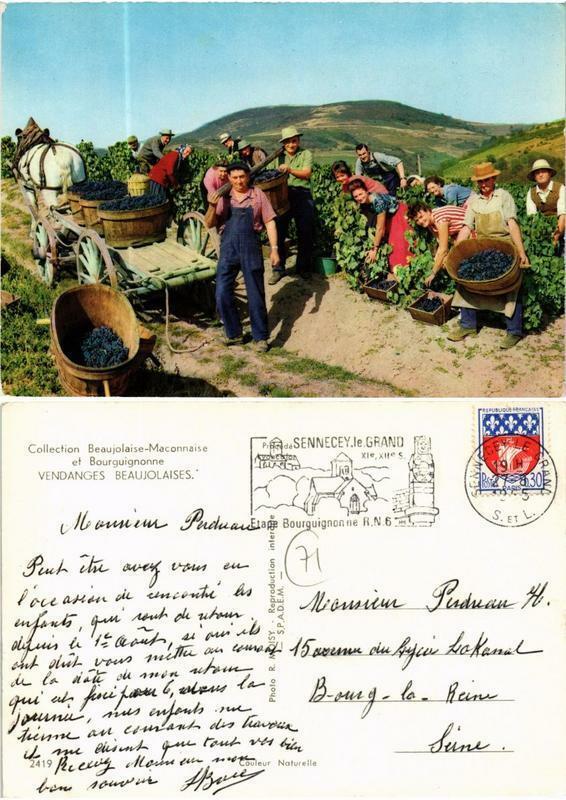 Collection Beaujolaise-Maconnaise
et Bourguignonne
VENDANGES BEAUJOLAISES.
SENNECEY.le.GRAND
XIe, XIIe S.
Etape Bourguignonne R.N.6
SENNECEY-LE-GRAND
19 H
S. ET L.
REPUBLIQUE FRANÇAISE
0.30
PARIS
Monsieur Perdreau
Peut être avez vous eu
l'occasion de rencontré les
enfants, qui sont de retour
depuis le 1er Août, si oui ils
ont dût vous mettre au courant
de la date de mon retour
qui est fixé pour le 6, dans la
journée, mes enfants me
tienne au courant des travaux
il me disent que tout vas bien
Recevez Monsieur mon
bon souvenir
71
Monsieur Perdreau H.
15 avenue du Lycée Lakanal
Bourg-la-Reine
Seine.
Photo R. - Reproduction interdite
- S.P.A.D.E.M. -
2419
Couleur Naturelle